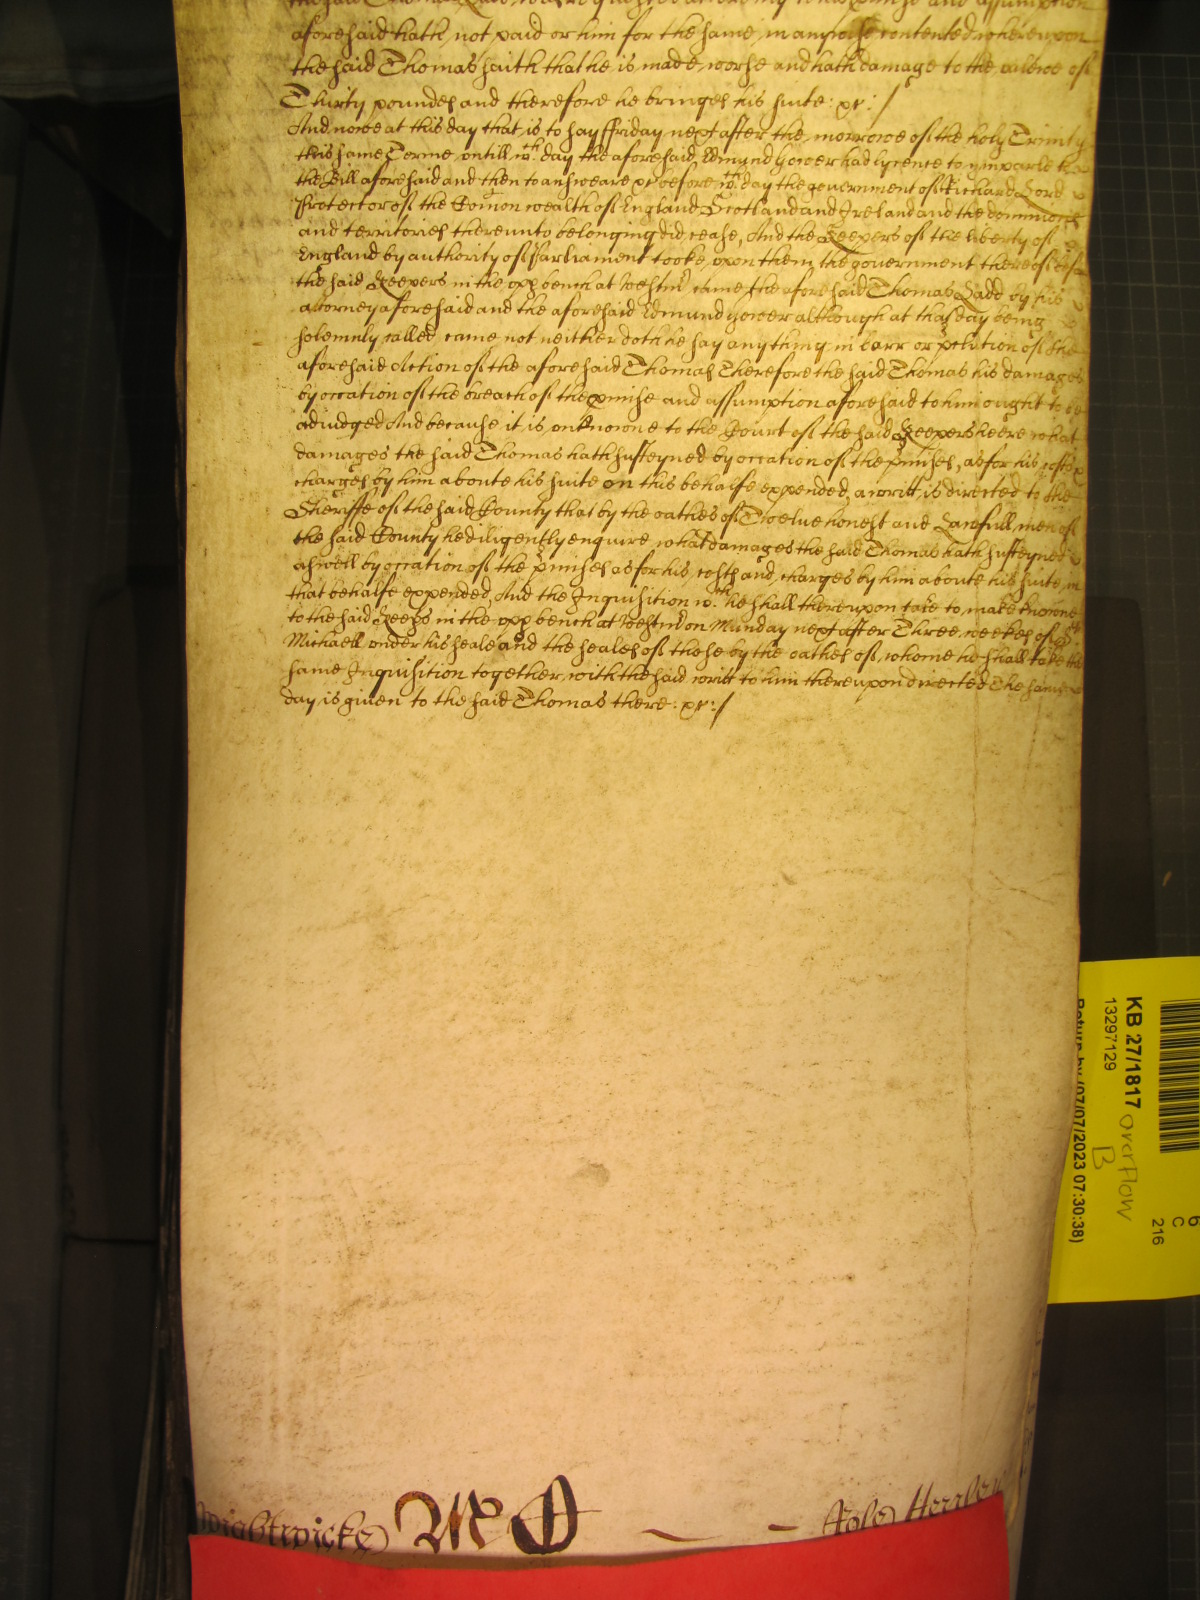 the said Thomas Ladd
aforesaid hath not paid or him for the same in anywise contented whereupon
the said Thomas saith that he is made worse and hath damage to the valewe of
Thirty poundes and therefore he bringes his suite: &c: /
And nowe at this day that is to say ffriday next after the morrowe of the holy Trinity
this same Terme vntill wch. day the aforesaid Edmund Gower had lycence to imparle to
the Bill aforesaid and then to answeare &c before wch. day the government of Richard Lord
Protector of the Comon wealth of England Scotland and Ireland and the dominions
and territories thereunto belonging did cease, And the Keepers of the liberty of
England by authority of Parliament tooke vpon them the government thereof before
the said Keepers in the vpp bench at Westmr came the aforesaid Thomas Ladd by his
attorney aforesaid and the aforesaid Edmund Gower although at that day being
solemnly called came not neither doth he say anything in barr or pclusion of the
aforesaid Action of the aforesaid Thomas Therefore the said Thomas his damages
by occation of the breach of the pmise and assumption aforesaid to him ought to be
adiudged And because it is vnknowne to the Court of the said Keepers heere what
damages the said Thomas hath susteyned by occation of the pmises, as for his costs &
charges by him aboute his suite on this behalfe expended, a writt is directed to the
Sheriffe of the said County that by the oathes of Twelue honest and Lawfull men of
the said County he diligently enquire what damages the said Thomas hath susteyned
aswell by occation of the pmises as for his costs and charges by him aboute his suite in
that behalfe expended, And the Inquisition wch. he shall thereupon take to make knowne
to the said Keeps in the vpp bench at Westmr on Munday next after Three weekes of St
Michaell vnder his seale and the seales of those by the oathes of whome he shall take the
same Inquisition together with the said writt to him thereupon directed The same
day is given to the said Thomas there: &c: /
Wightwicke
KB 27/1817 overflow B
13297129
Return by (07/07/2023 07:30:38)
6
C
216